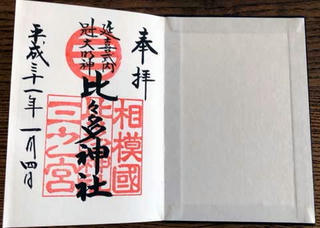 奉拝
延喜式内
冠大明神
比々多神社
相模國
三之宮
平成三十一年一月四日